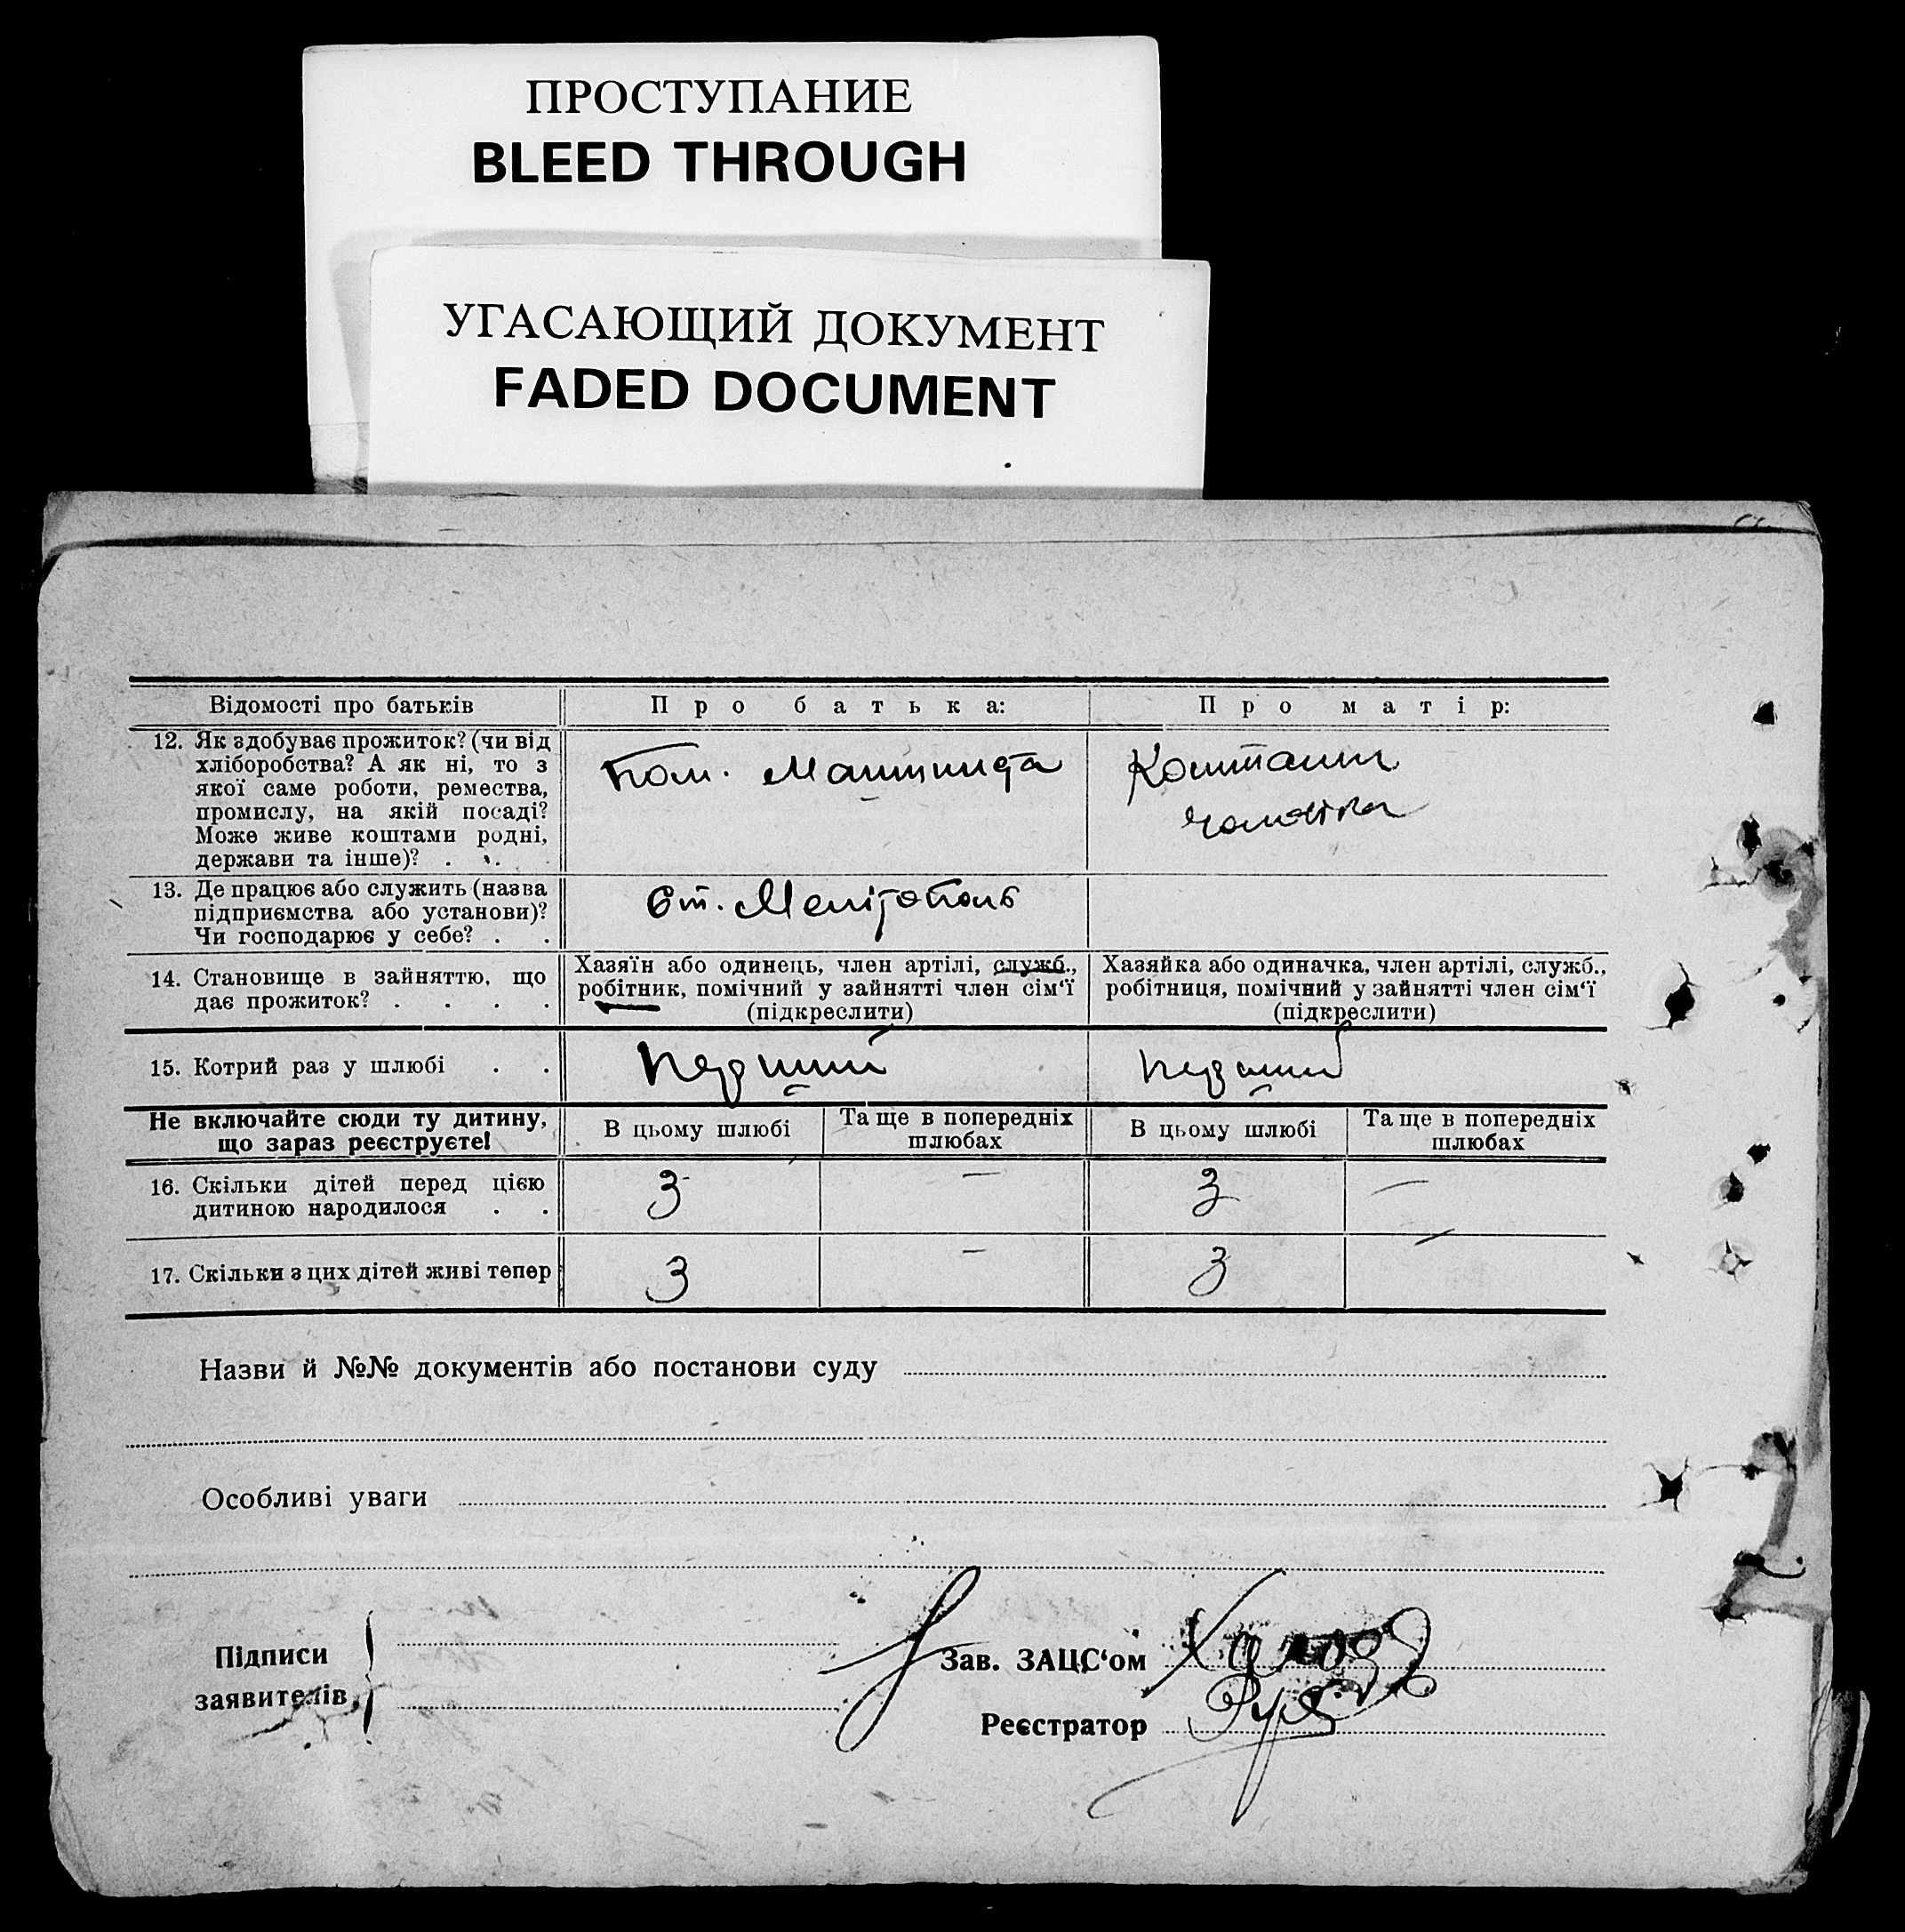 ПРОСТУПАНИЕ
BLEED THROUGH
УГАСАЮЩИЙ ДОКУМЕНТ
FADED DOCUMENT
Відомості про батьків
Про батька:
Про матір:
12. Як здобуває прожиток? (чи від
хліборобства? А як ні, то з
якої саме роботи, ремества,
промислу, на якій посаді?
Може живе коштами родні,
держави та інше)? . .
Пом. Машиніста
Коштами
чоловіка
13. Де працює або служить (назва
підприємства або установи)?
Чи господарює у себе? . .
Ст. Мелітополь
14. Становище в зайняттю, що
дає прожиток? . . . .
Хазяїн або одинець, член артілі, служб.,
робітник, помічний у зайнятті член сім‘ї
(підкреслити)
Хазяйка або одиначка, член артілі, служб.,
робітниця, помічний у зайнятті член сім‘ї
(підкреслити)
15. Котрий раз у шлюбі . .
перший
перший
Не включайте сюди ту дитину,
що зараз реєструєте!
В цьому шлюбі
Та ще в попередніх
шлюбах
В цьому шлюбі
Та ще в попередніх
шлюбах
16. Скільки дітей перед цією
дитиною народилося . .
3 – 3 –
17. Скільки з цих дітей живі тепер
3 – 3 –
Назви й №№ документів або постанови суду
Особливі уваги
Підписи
заявителів
Зав. ЗАЦС‘ом
Реєстратор